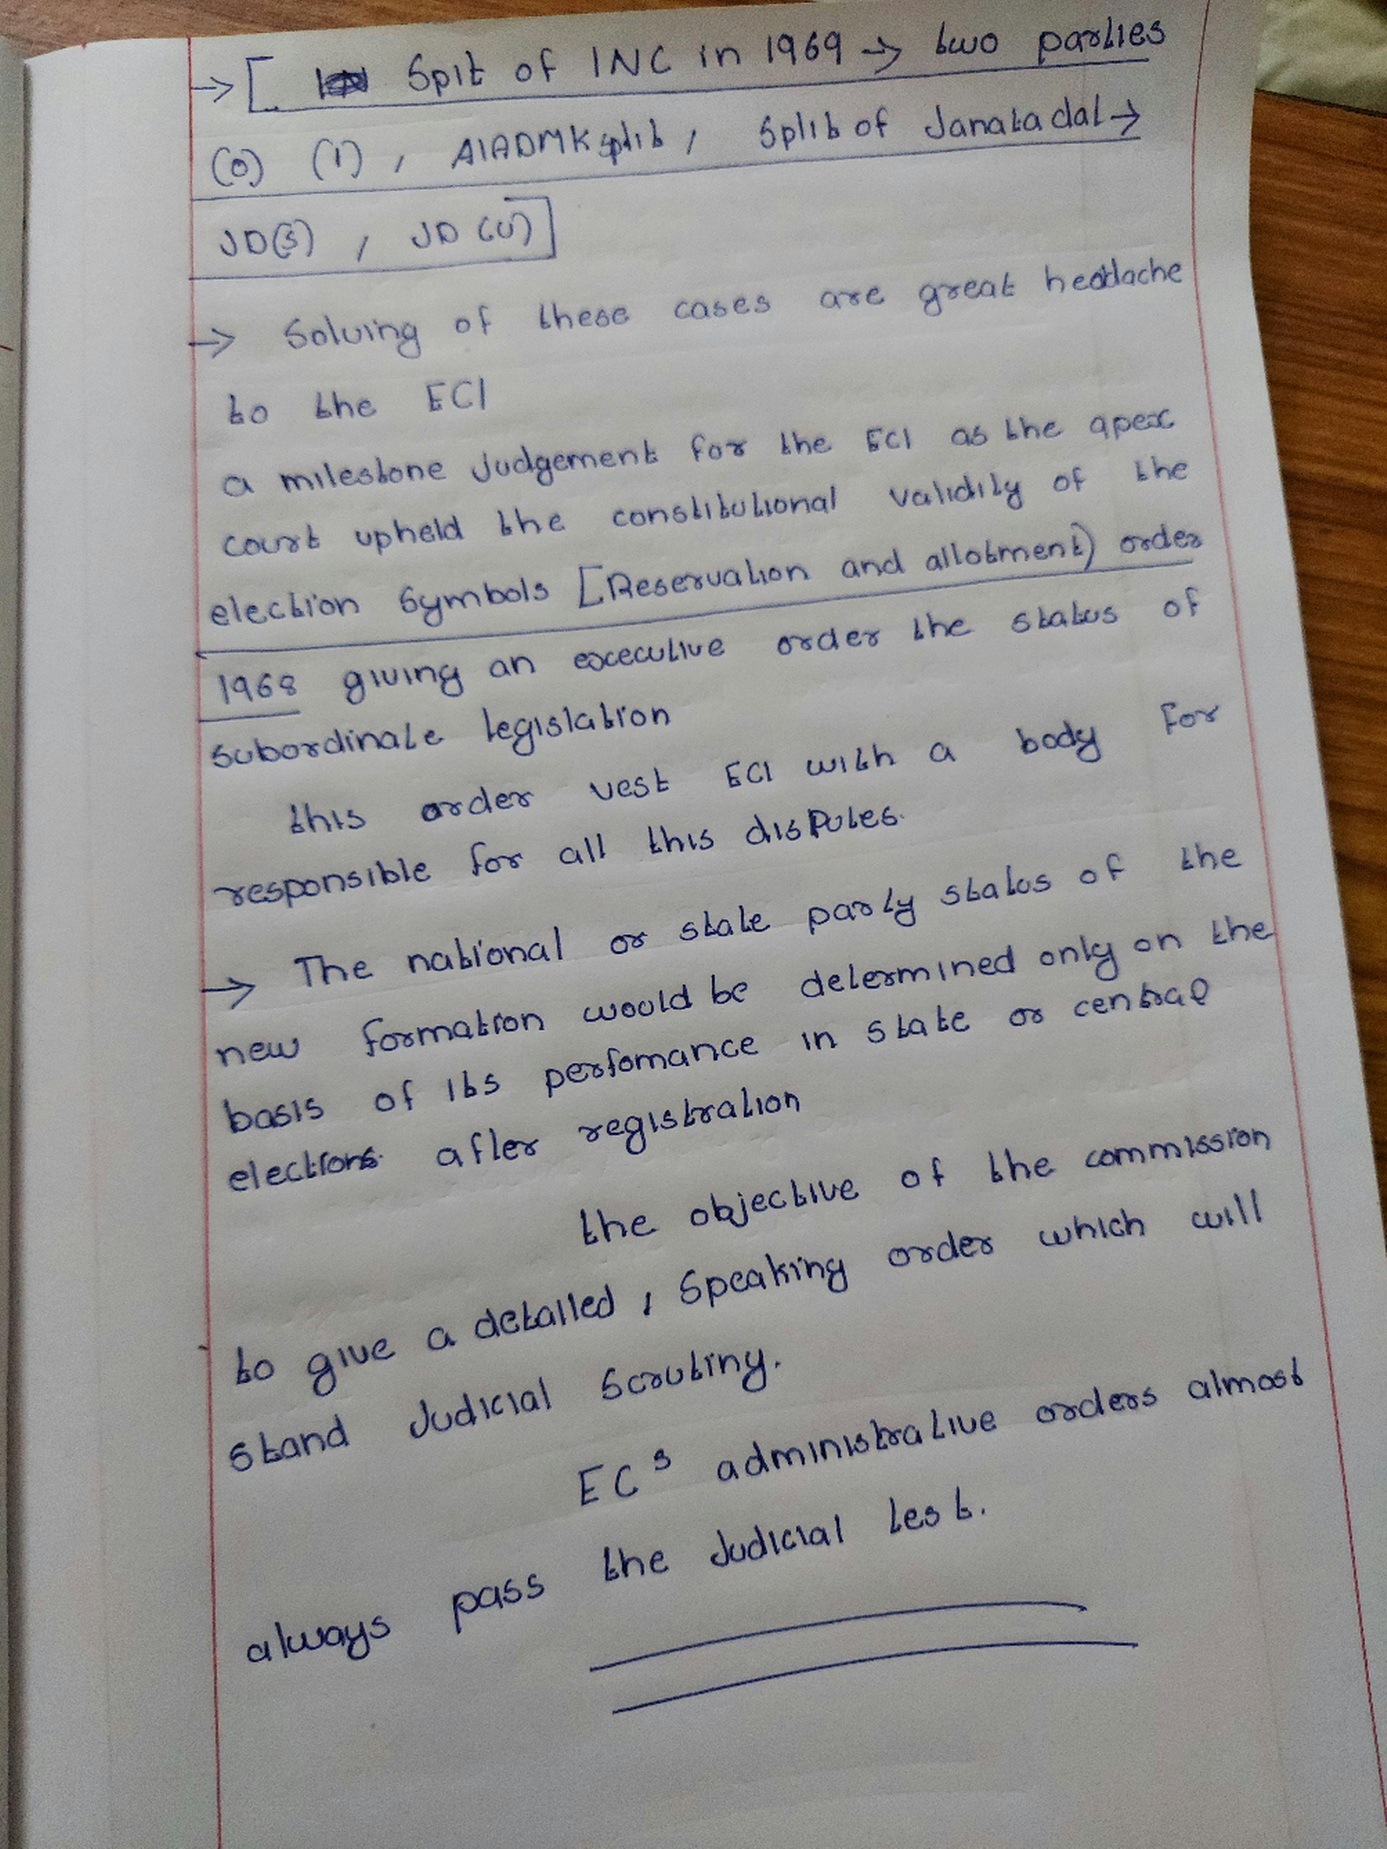 → [ Spit of INC in 1969 → two parties
(O) (I), AIADMK split, Split of Janatadal →
JD(S), JD(U)]
→ Solving of these cases are great headache
to the ECI
a milestone Judgement for the ECI as the apex
court upheld the constitutional validity of the
election Symbols [Reservation and allotment) order
1968 giving an executive order the status of
Subordinate legislation
this order vest ECI with a body for
responsible for all this disputes.
→ The national or state party status of the
new formation would be determined only on the
basis of its perfomance in state or central
elections after registration
the objective of the commission
to give a detailed, Speaking order which will
stand Judicial Scrutiny.
ECs administrative orders almost
always pass the Judicial test.